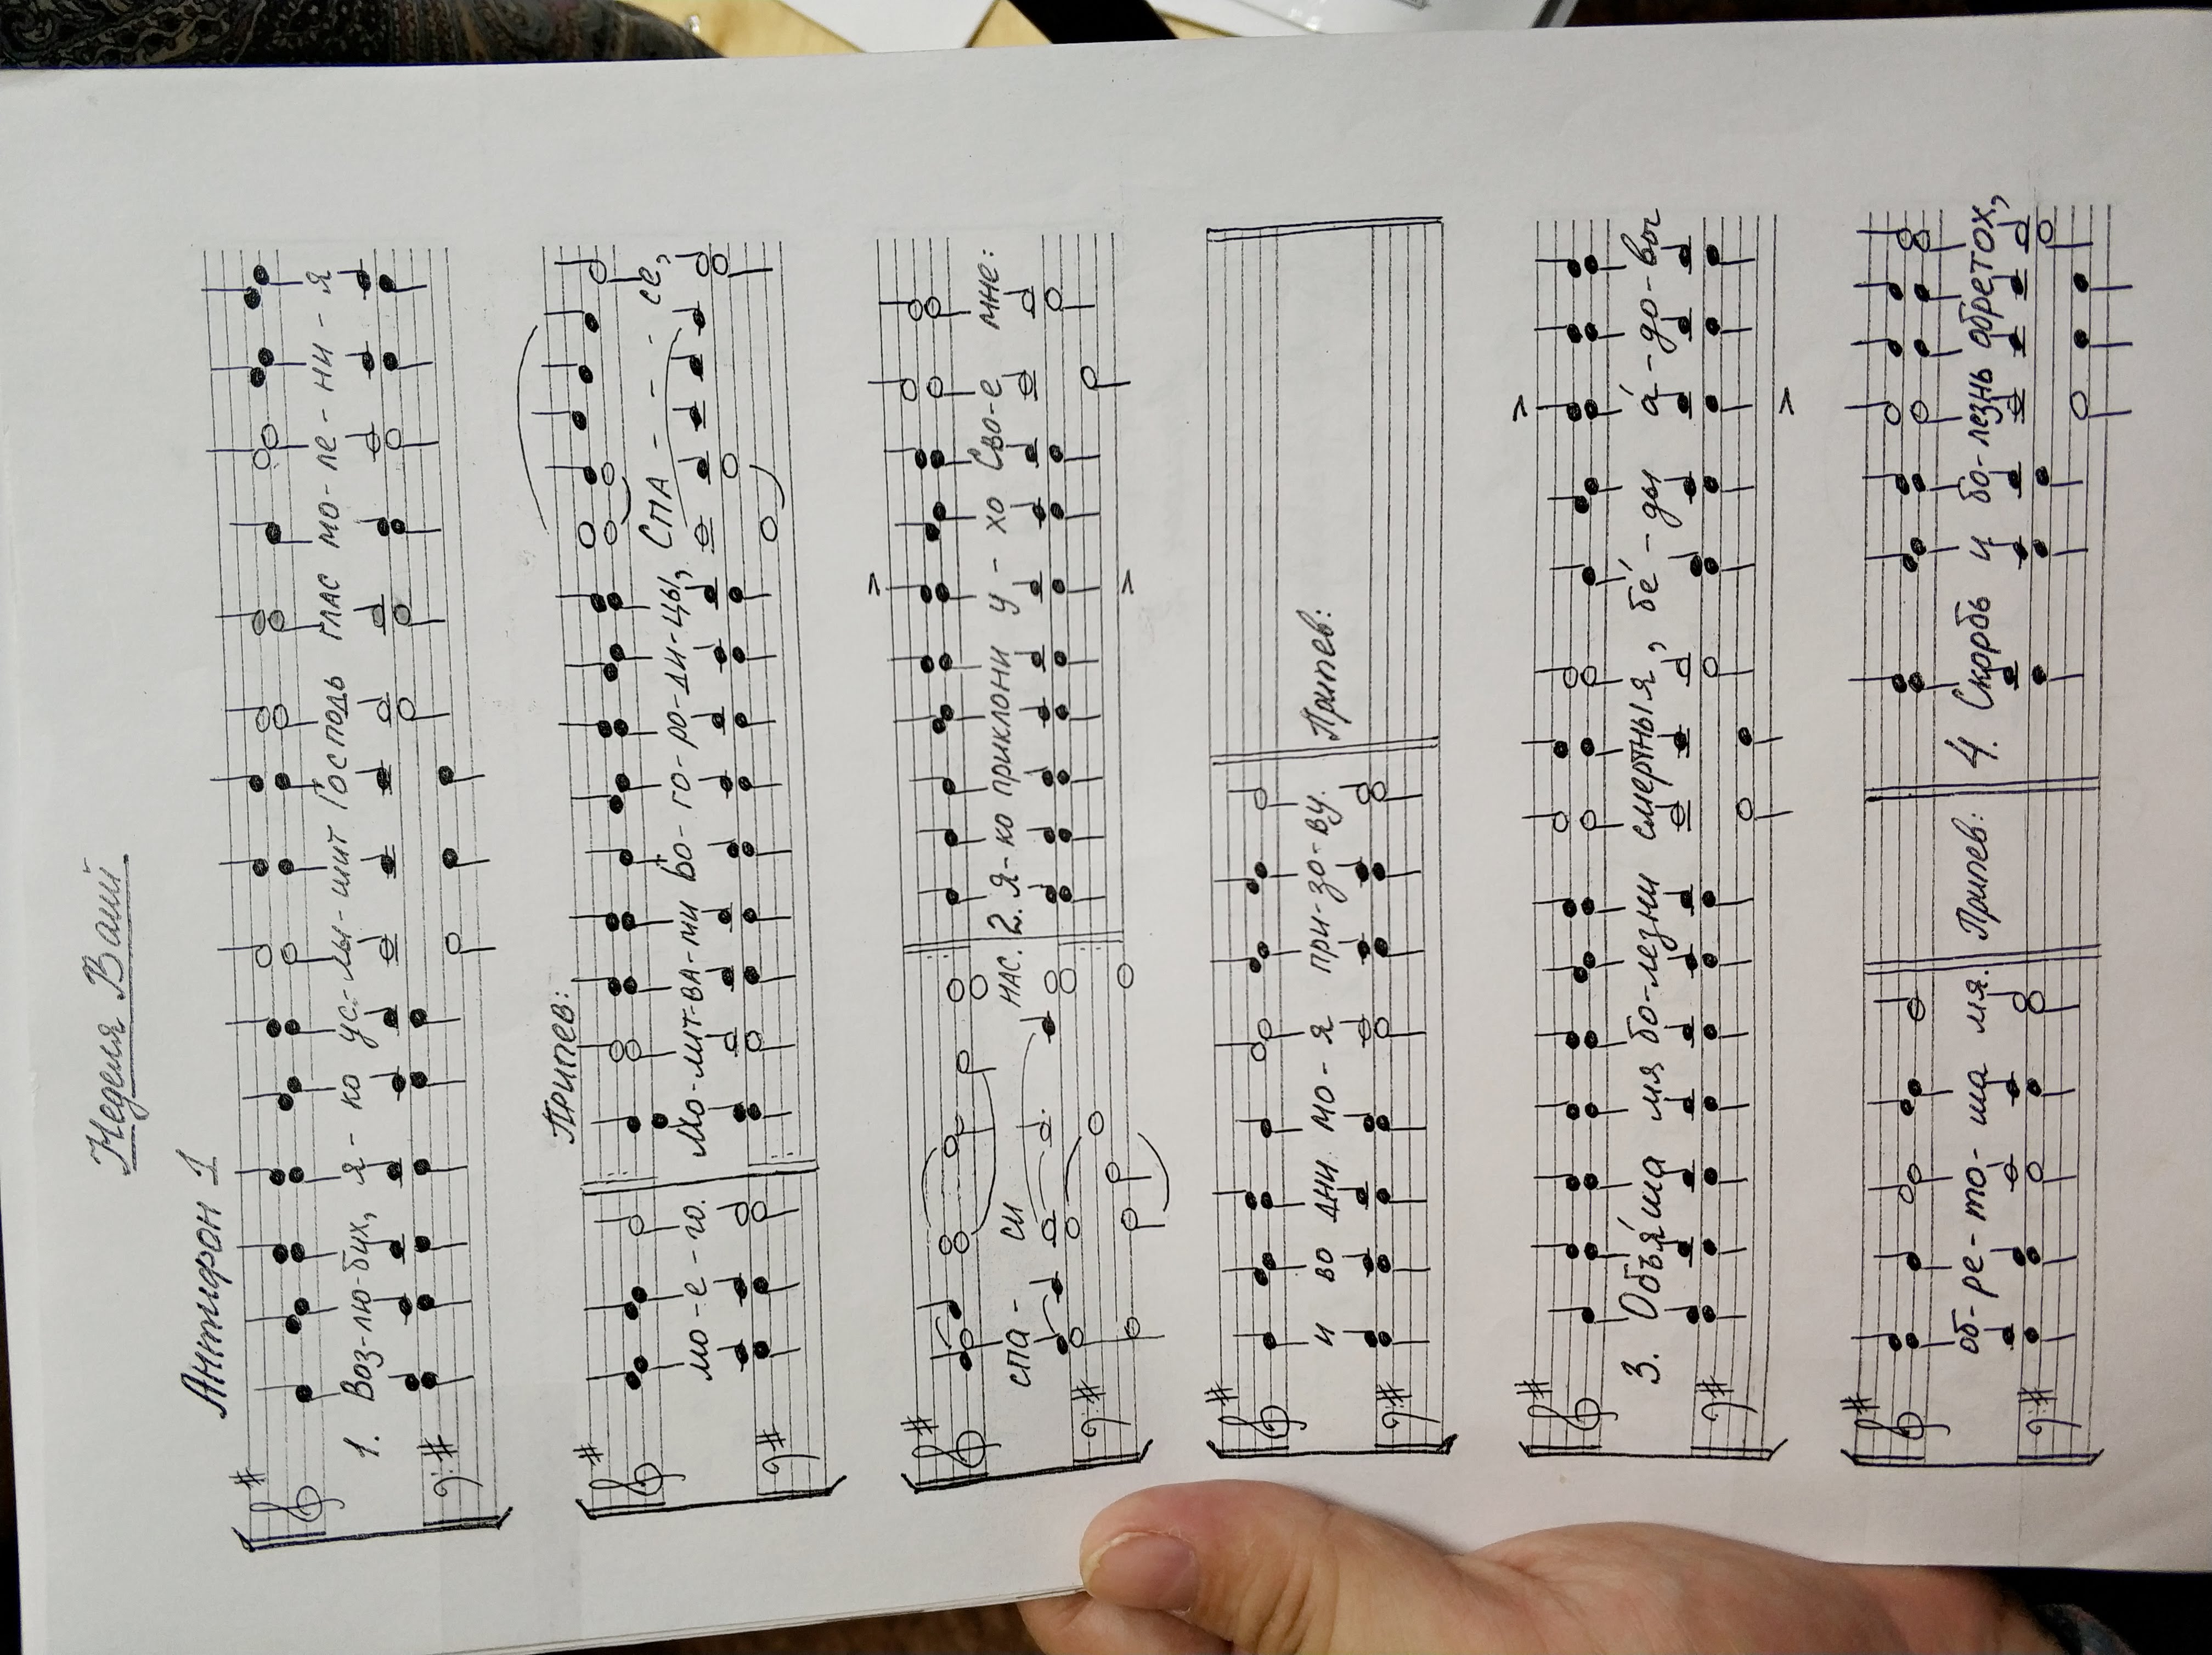 Неделя Ваий
Антифон 1
1. Воз-лю-бих, я-ко ус-лы-шит Господь глас мо-ле-ни-я
Припев:
мо-е-го. Мо-лит-ва-ми Бо-го-ро-ди-цы, Спа - - - се,
спа - си нас. 2. Я-ко приклони у-хо Сво-е мне:
и во дни мо-я при-зо-ву. Припев:
3. Объя́ша мя бо-лезни смертныя, бе́-ды а́-до-вы
об-ре-то-ша мя. Припев: 4. Скорбь и бо-лезнь обретох,